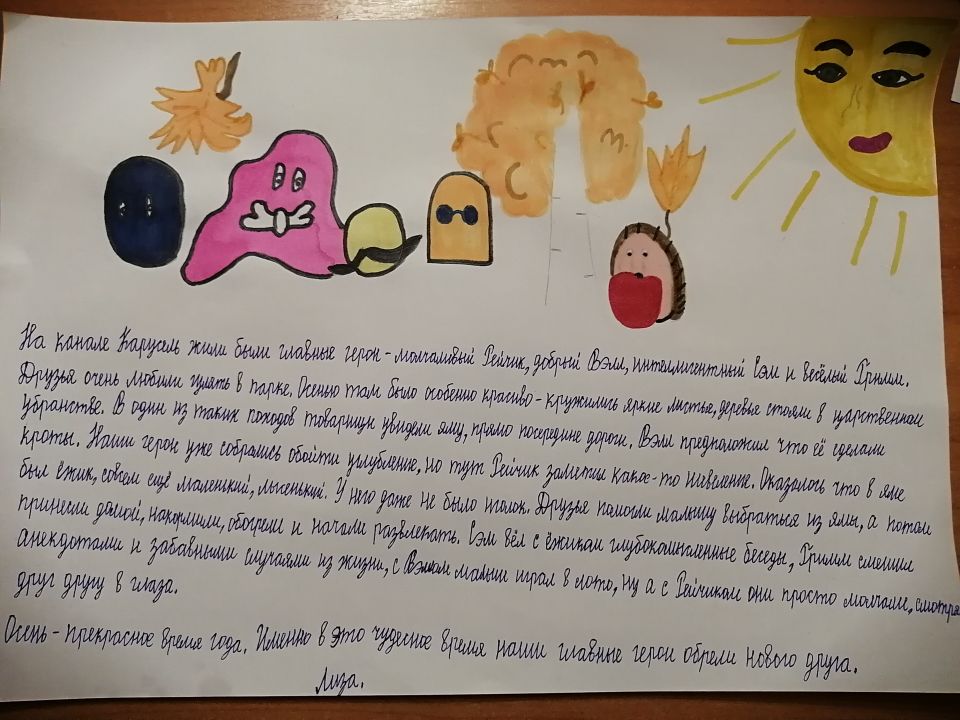 На канале Карусель жили были главные герои - молчаливый Рейчик, добрый Вэлл, интеллигентный Сэм и весёлый Гримм.
Друзья очень любили гулять в парке. Осенью там было особенно красиво - кружились яркие листья, деревья стояли в царственном
убранстве. В один из таких походов товарищи увидели яму, прямо посередине дороги. Вэлл предположил что её сделали
кроты. Наши герои уже собрались обойти углубление, но тут Рейчик заметил какое-то шевеление. Оказалось что в яме
был ёжик, совсем ещё маленький, лысенький. У него даже не было иголок. Друзья помогли малышу выбраться из ямы, а потом
принесли домой, накормили, обогрели и начали развлекать. Сэм вёл с ёжиком глубокомысленные беседы, Гримм смешил
анекдотами и забавными случаями из жизни, с Вэллом малыш играл в лото, ну а с Рейчиком они просто молчали, смотря
друг другу в глаза.
Осень - прекрасное время года. Именно в это чудесное время наши главные герои обрели нового друга.
Лиза.